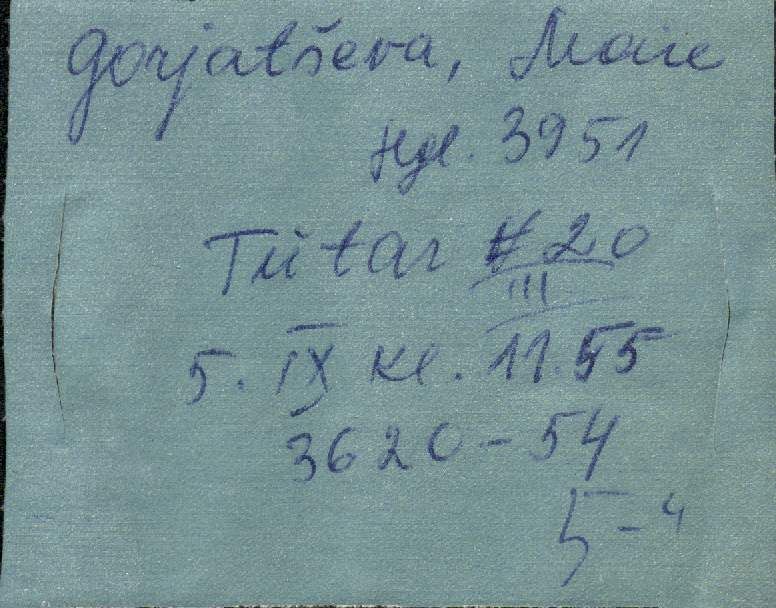 Gorjatševa, Maie
Hgl. 3951
Tütar #20
III
5. IX kl. 11.55
3620-54
5-4